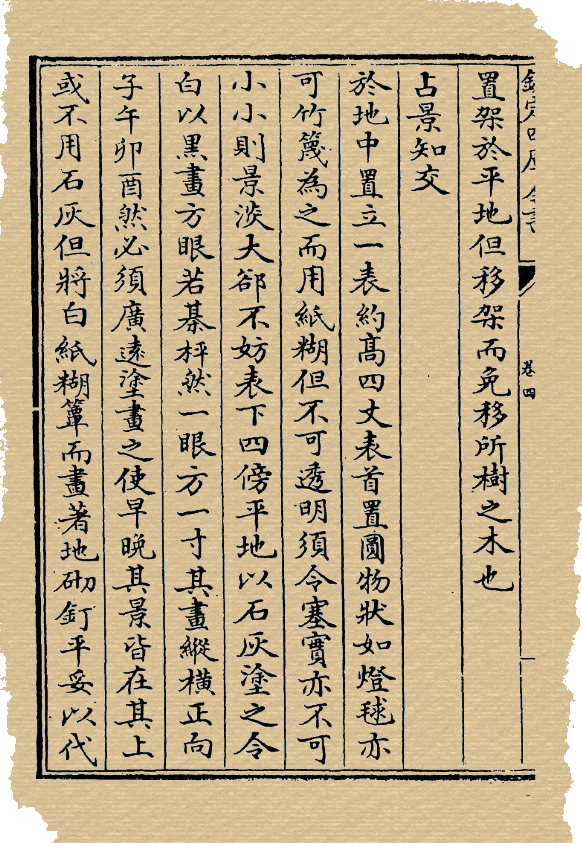 欽定四庫全書
卷四
置架於平地但移架而免移所樹之木也
占景知交
於地中置立一表約高四丈表首置圓物狀如燈毬亦
可竹篾為之而用紙糊但不可透明須令塞實亦不可
小小則景淡大郤不妨表下四傍平地以石灰塗之令
白以黑畫方眼若棊枰然一眼方一寸其畫縱橫正向
子午卯酉然必須廣遠塗畫之使早晚其景皆在其上
或不用石灰但將白紙糊簟而畫著地砌釘平妥以代